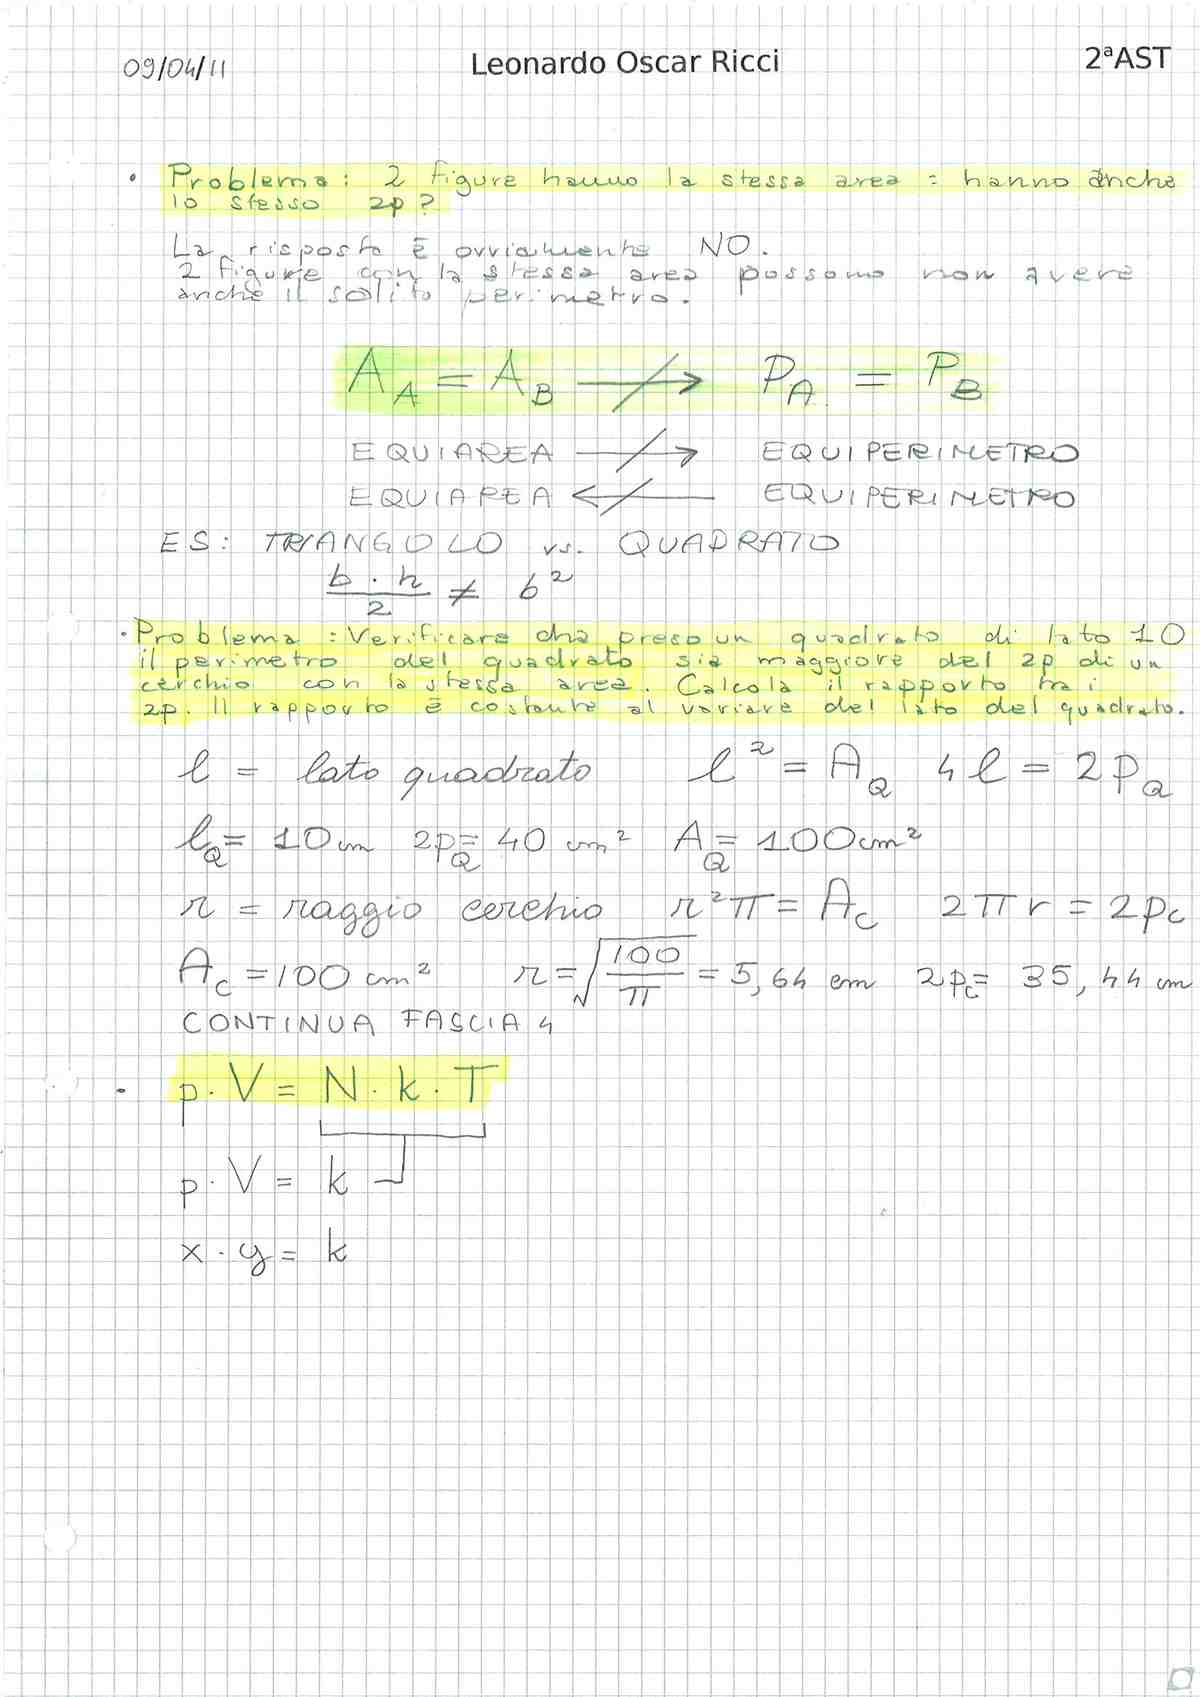 09/04/11 Leonardo Oscar Ricci 2ªAST
• Problema: 2 figure hanno la stessa area = hanno anche
lo stesso 2p?
La risposta è ovviamente NO.
2 figure con la stessa area possono non avere
anche il solito perimetro.
A_A = A_B ↛ P_A = P_B
EQUIAREA ↛ EQUIPERIMETRO
EQUIAREA ↚ EQUIPERIMETRO
ES: TRIANGOLO vs. QUADRATO
b · h / 2 ≠ b²
• Problema: Verificare che preso un quadrato di lato 10
il perimetro del quadrato sia maggiore del 2p di un
cerchio con la stessa area. Calcola il rapporto tra i
2p. Il rapporto è costante al variare del lato del quadrato.
l = lato quadrato l² = A_Q 4l = 2p_Q
l_Q = 10 cm 2p_Q = 40 cm² A_Q = 100 cm²
r = raggio cerchio r²π = A_C 2πr = 2p_C
A_C = 100 cm² r = √(100/π) = 5,64 cm 2p_C = 35,44 cm
CONTINUA FASCIA 4
• p · V = N · k · T
p · V = k
x · y = k